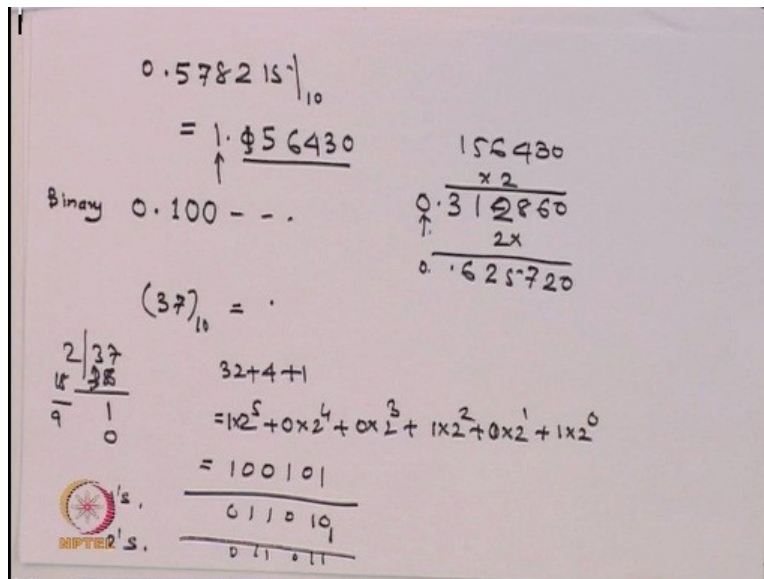 0.578215|10
= 1.156430
Binary 0.100 - - .
156430
x 2
0.312860
2x
0. .625720
(37)10 = .
2|37
18
9 1
0
32+4+1
=1x2^5+0x2^4+0x2^3+1x2^2+0x2^1+1x2^0
= 100101
1's. 011010
1
2's. 011011
NPTEL